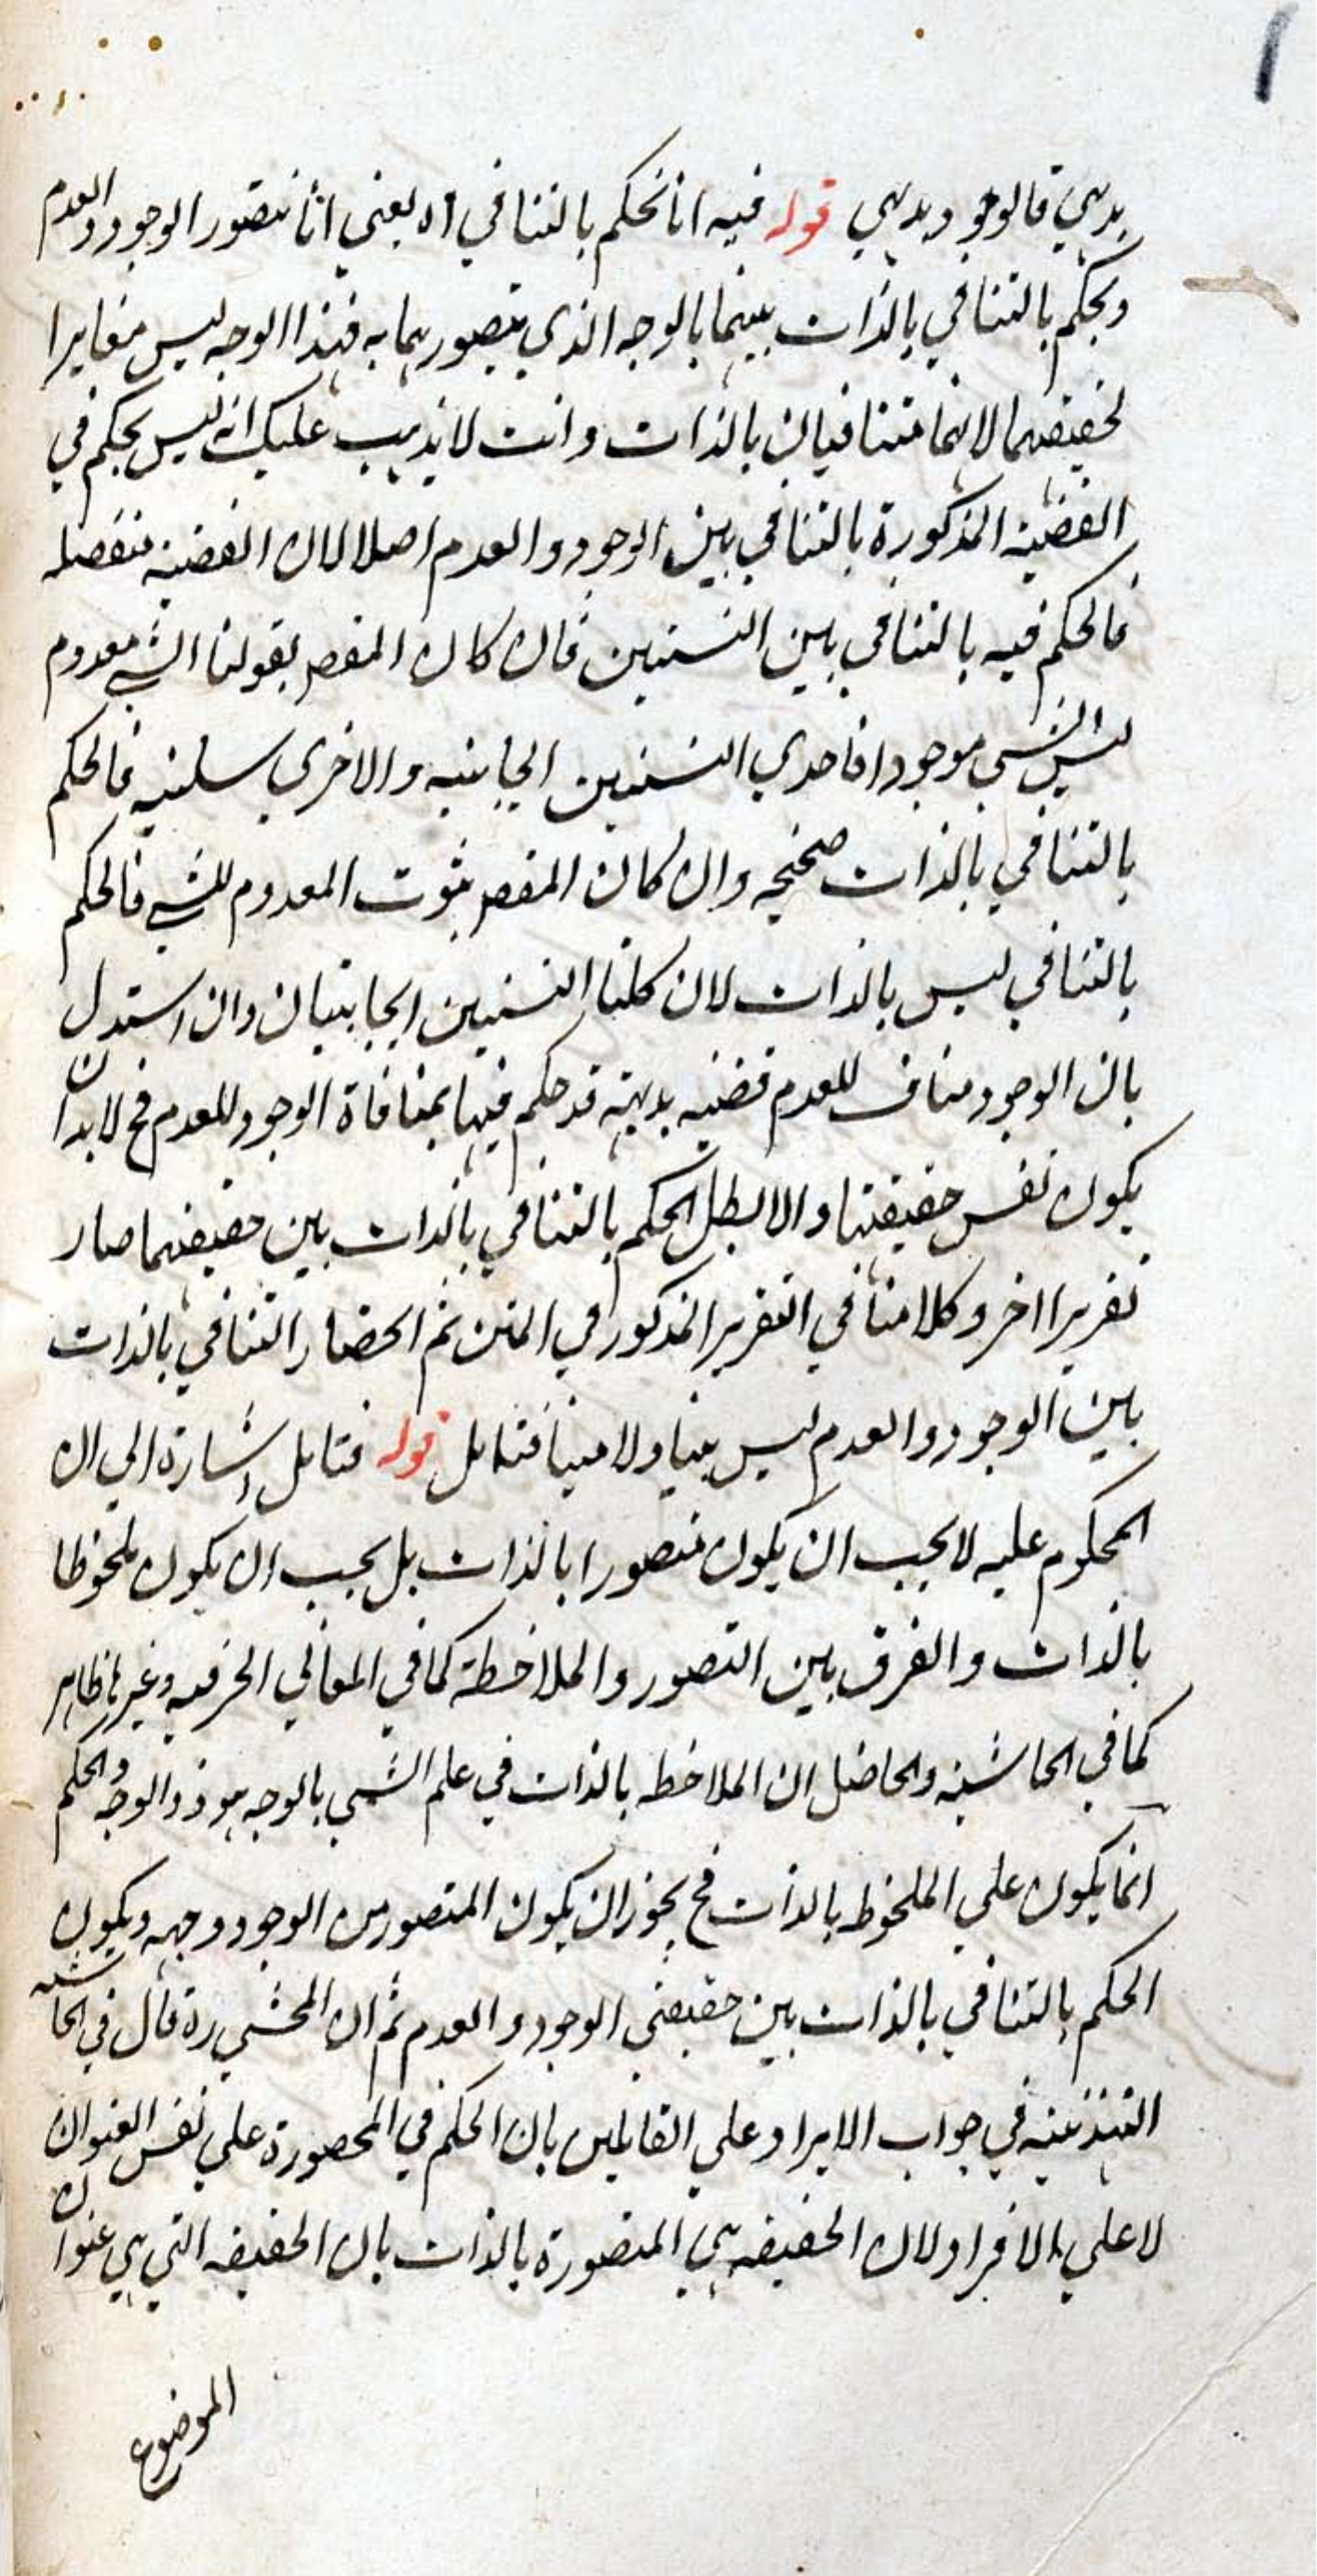 بديهي فالوجود بديهي قوله فيه انا نحكم بالتنافي اه يعني انا نتصور الوجود والعدم
ونحكم بالتنافي بالذات بينهما بالوجه الذي نتصورهما به فهذا الوجه ليس مغايرا
لحقيقتهما لانهما متنافيان بالذات وانت لا يذهب عليك انه ليس يحكم في
القضية المذكورة بالتنافي بين الوجود والعدم اصلا لان القضية منفصلة
فالحكم فيه بالتنافي بين النسبتين فان كان المقصر بقولنا الشي معدوم
ليس الشي موجودا فاحدي النسبتين ايجابية والاخري سلبية فالحكم
بالتنافي بالذات صحيح وان كان المقصر ثبوت المعدوم للشي فالحكم
بالتنافي ليس بالذات لان كلتا النسبتين ايجابيتان وان استدل
بان الوجود مناف للعدم قضية بديهة قد حكم فيها بمنافاة الوجود للعدم فح لابد ان
يكون نفس حقيقتها والا لبطل الحكم بالتنافي بالذات بين حقيقتهما صار
تقريرا اخر وكلامنا في التقرير المذكور في المتن ثم انحصار التنافي بالذات
بين الوجود والعدم ليس بينا ولا مبينا فتامل قوله فتامل اشارة الي ان
المحكوم عليه لا يجب ان يكون متصورا بالذات بل يجب ان يكون ملحوظا
بالذات والفرق بين التصور والملاحظة كما في المعاني الحرفية وغيرها ظاهر
كما في الحاشية والحاصل ان الملاحظه بالذات في علم الشي بالوجه هو ذو الوجه والحكم
انما يكون علي الملحوظ بالذات فح يجوز ان يكون المتصور من الوجود وجهه ويكون
الحكم بالتنافي بالذات بين حقيقتي الوجود والعدم ثم ان المحشي ره قال في الحاشية
التهذيبية في جواب الايراد علي القائلين بان الحكم في المحصورة علي نفس العنوان
لا علي الافراد لان الحقيقة هي المتصورة بالذات بان الحقيقه التي هي عنوان
الموضوع